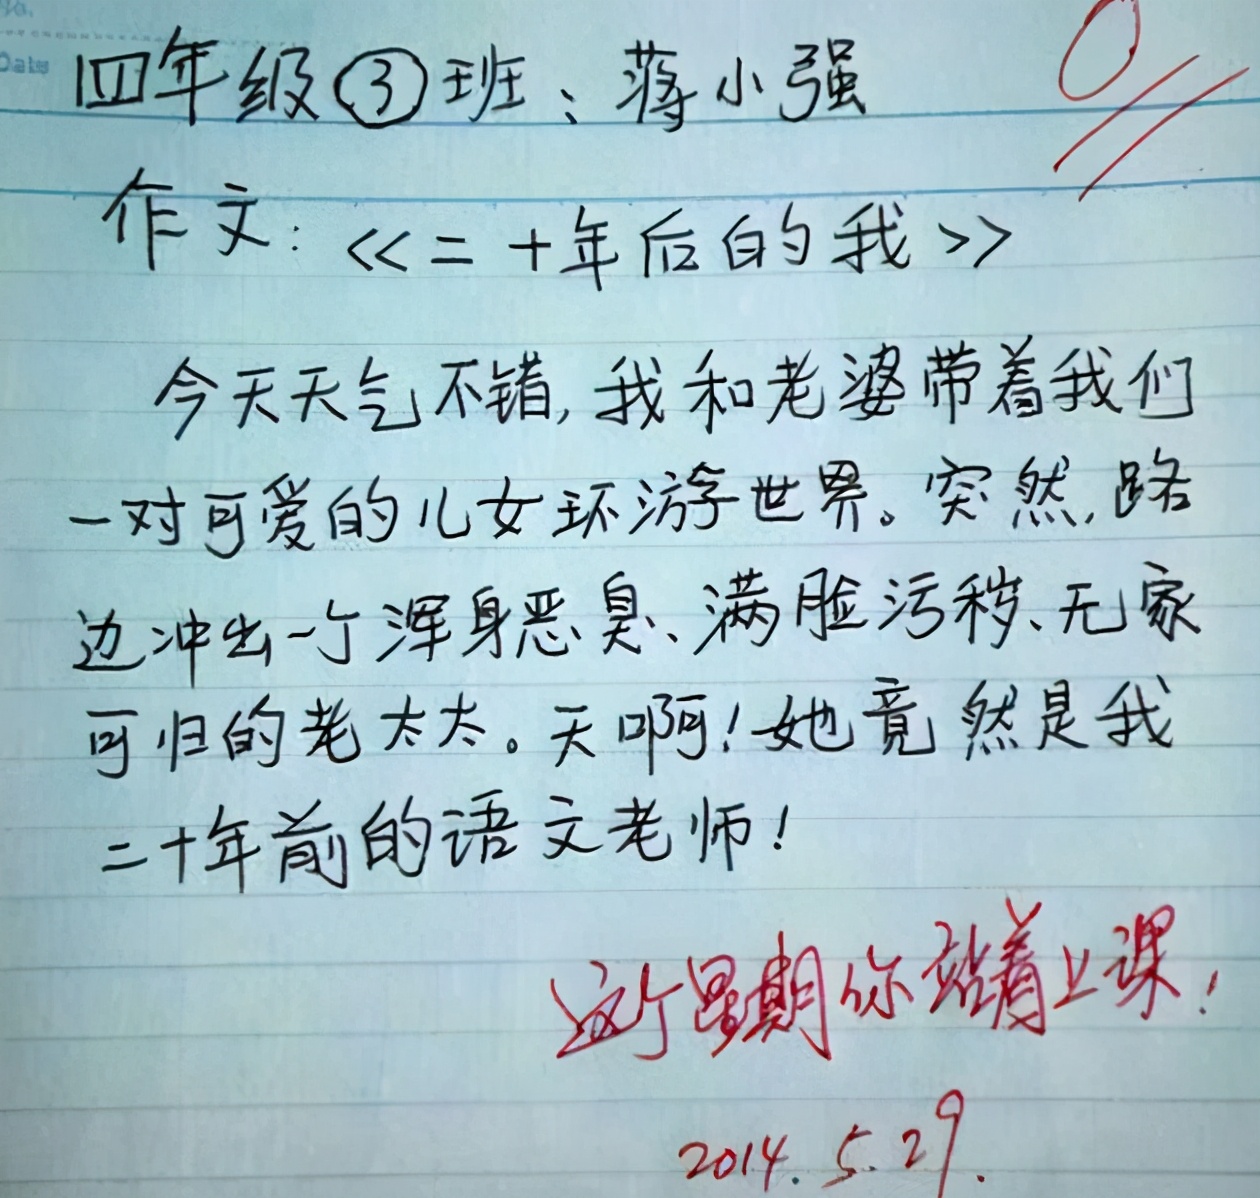 No.
Date
0
四年级③班：蒋小强
作文：<<二十年后的我>>
今天天气不错，我和老婆带着我们
一对可爱的儿女环游世界。突然，路
边冲出一个浑身恶臭、满脸污秽、无家
可归的老太太。天啊！她竟然是我
二十年前的语文老师！
这个星期你站着上课！
2014.5.29.